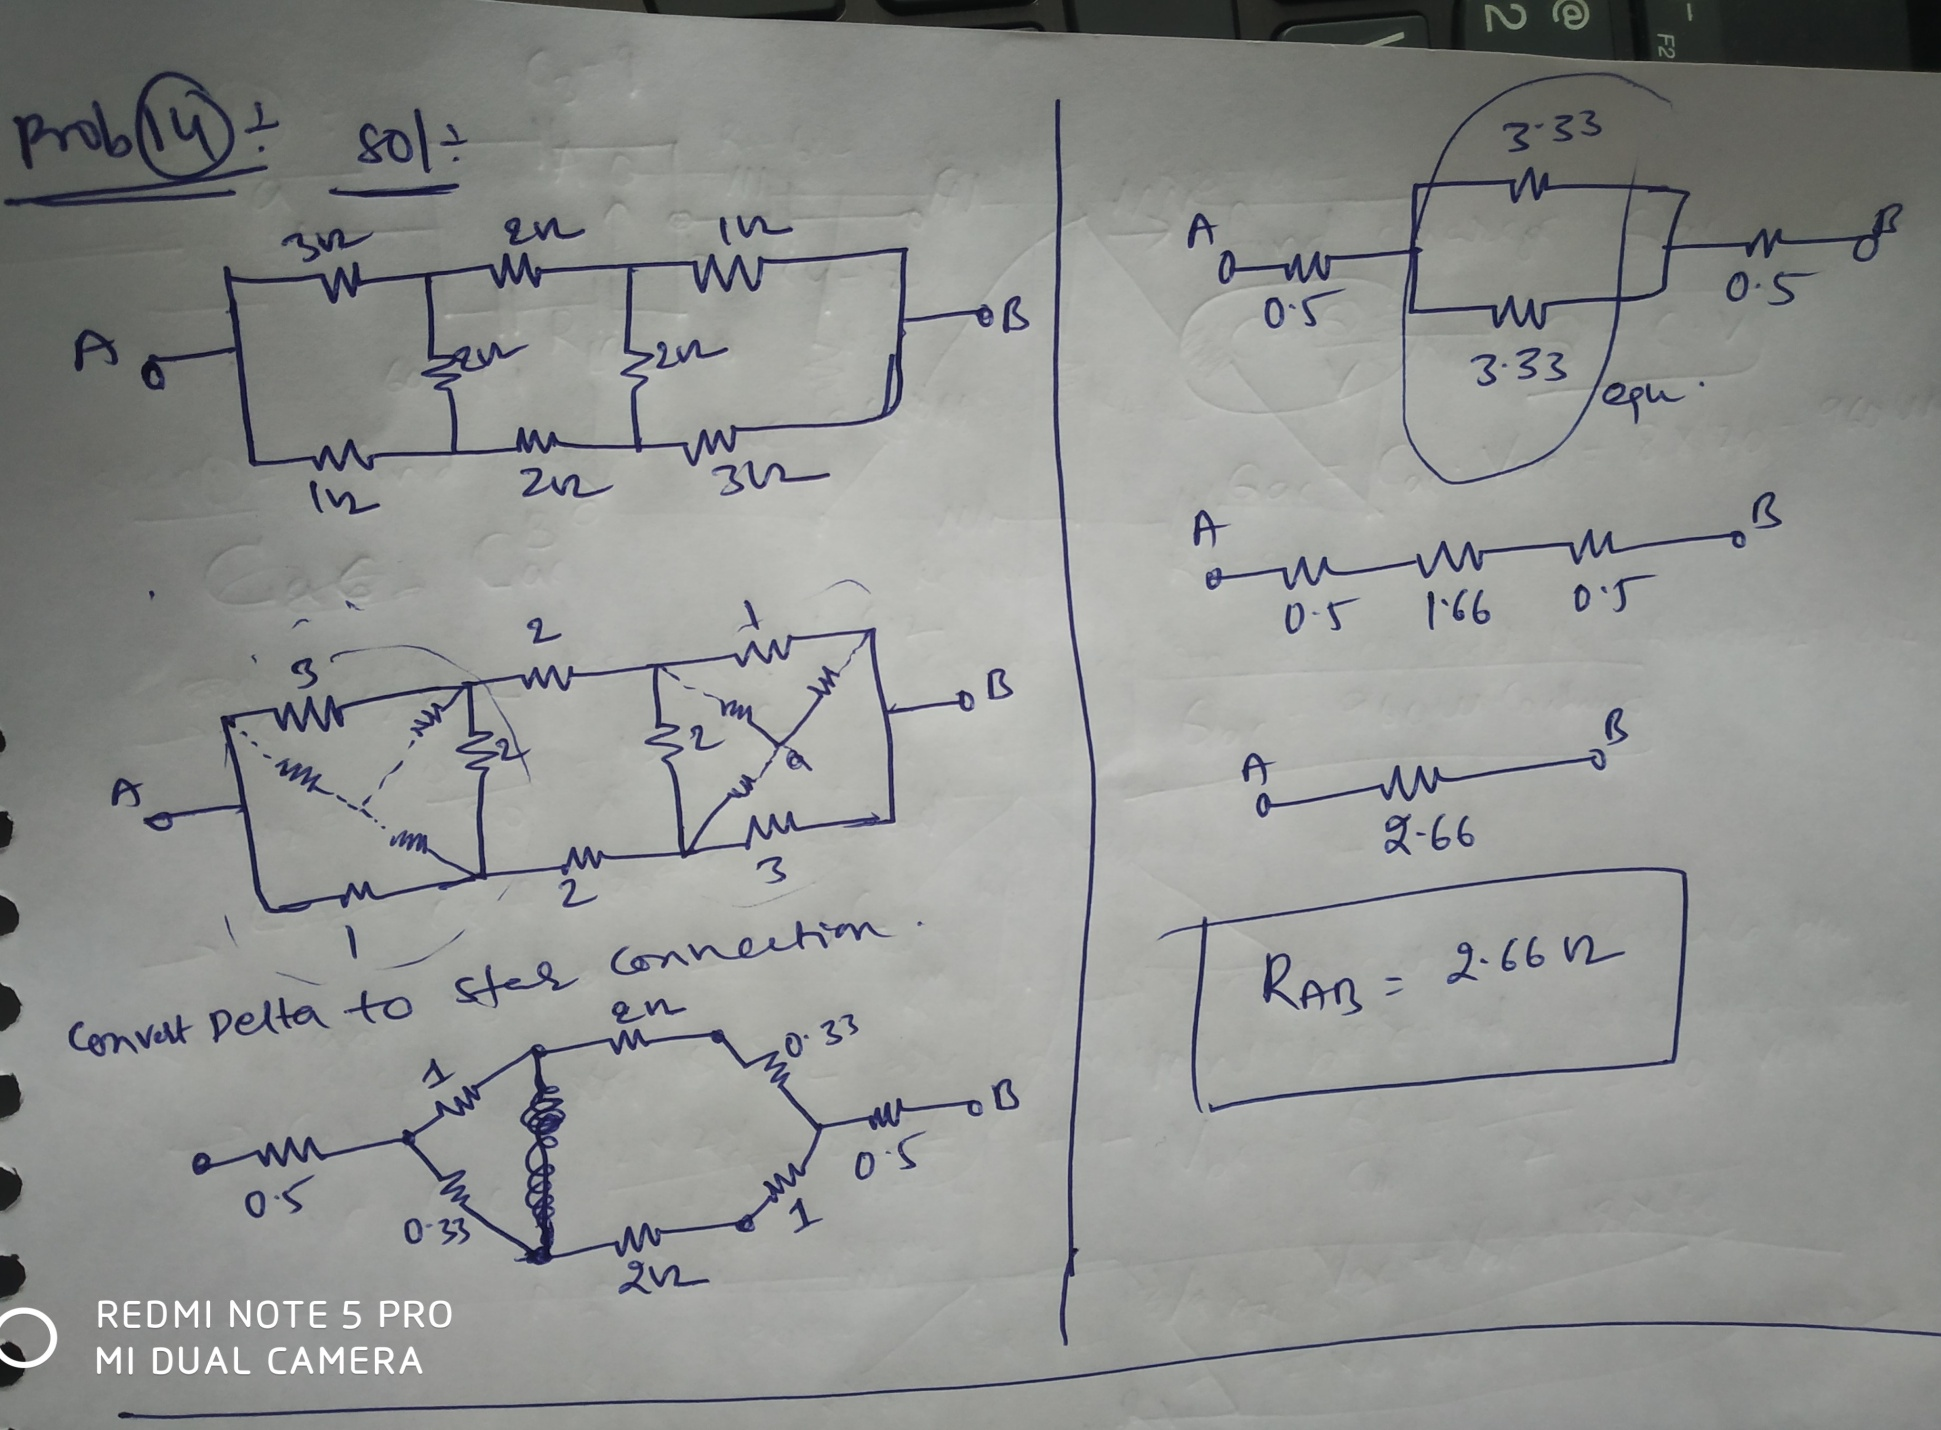 Prob 14 ÷ sol ÷
3Ω 2Ω 1Ω
A 2Ω 2Ω B
1Ω 2Ω 3Ω
3 2 1
A 2 2 B
1 2 3
Convert Delta to star connection.
1 2Ω 0.33
0.5 0.5 B
0.33 2Ω 1
3.33
A B
0.5 0.5
3.33
equ.
A B
0.5 1.66 0.5
A B
2.66
RAB = 2.66 Ω
@ 2
F2
REDMI NOTE 5 PRO
MI DUAL CAMERA